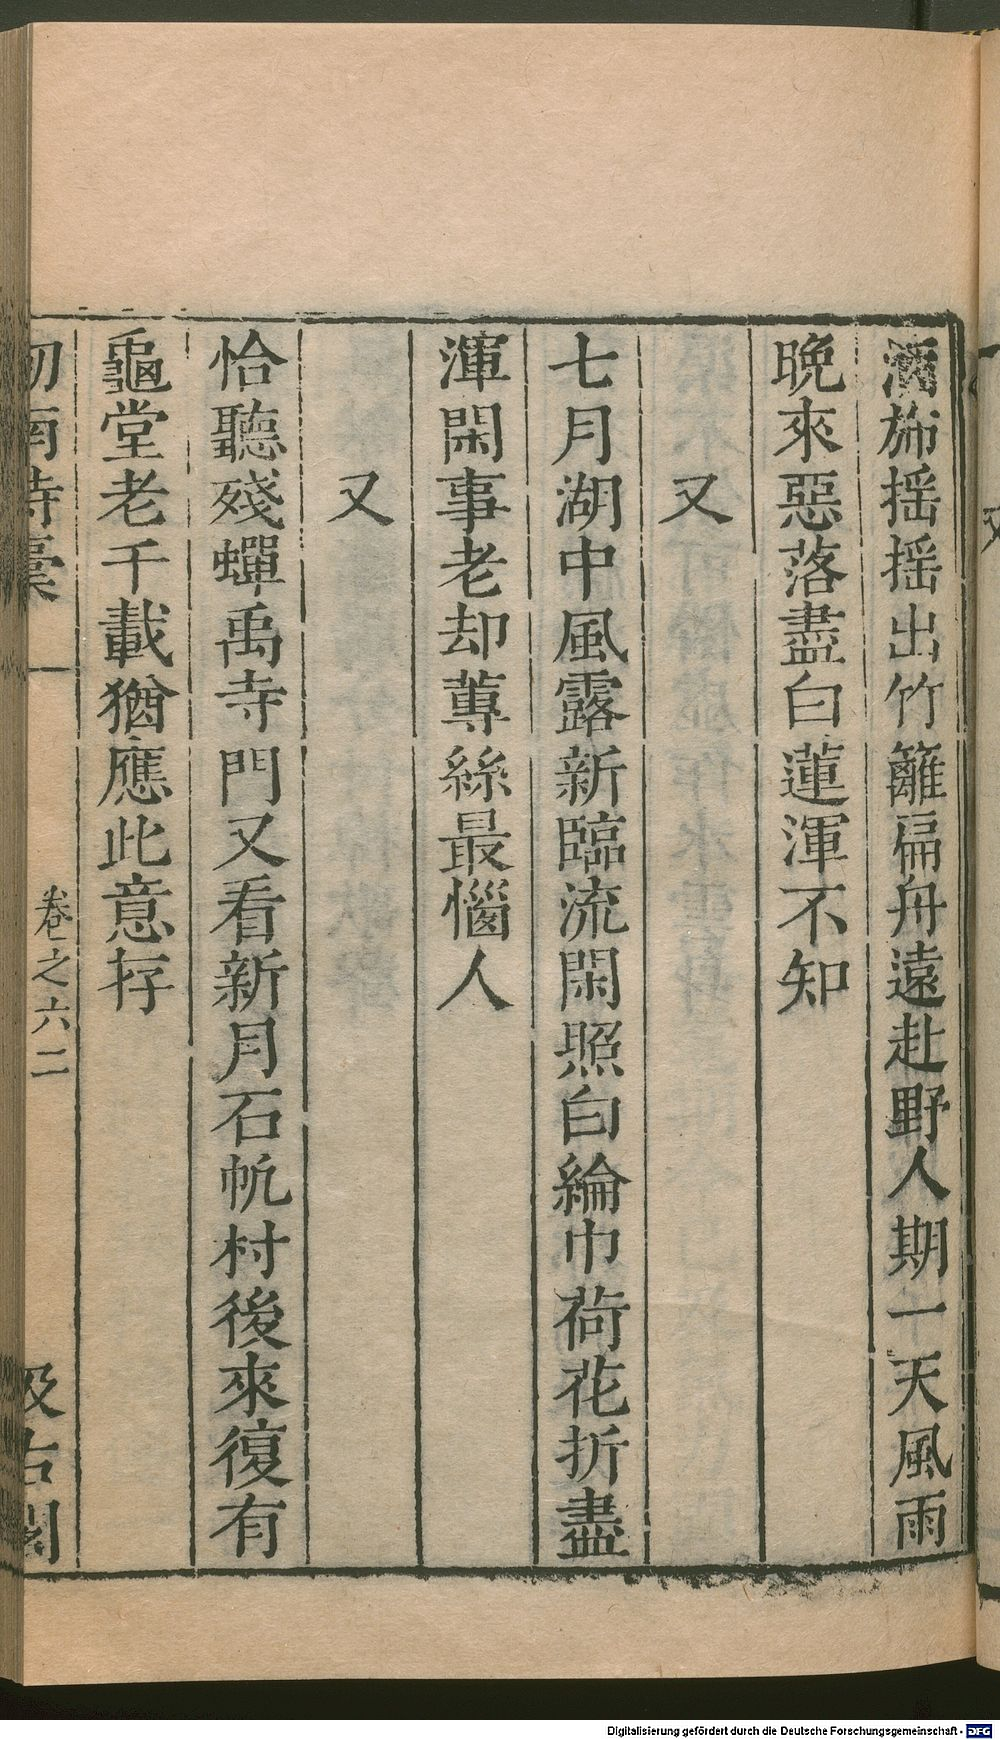 酒斾搖搖出竹籬扁舟遠赴野人期一天風雨
晚來惡落盡白蓮渾不知
又
七月湖中風露新臨流閑照白綸巾荷花折盡
渾閑事老却蓴絲最惱人
又
恰聽殘蟬禹寺門又看新月石帆村後來復有
龜堂老千載猶應此意存
劒南詩稾
卷之六二
汲古閣
又
Digitalisierung gefördert durch die Deutsche Forschungsgemeinschaft - DFG